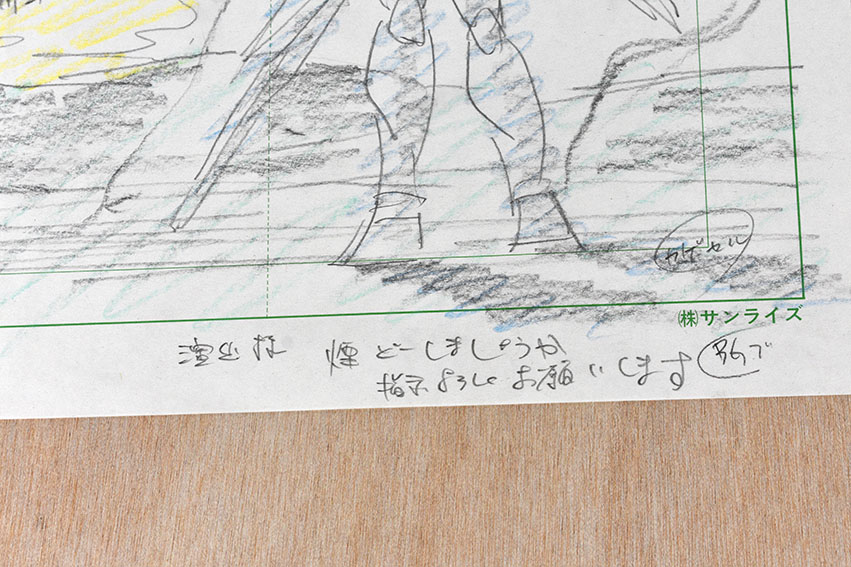 カゲセル
㈱サンライズ
演出様 煙 どーしましょうか
指示よろしく お願いします